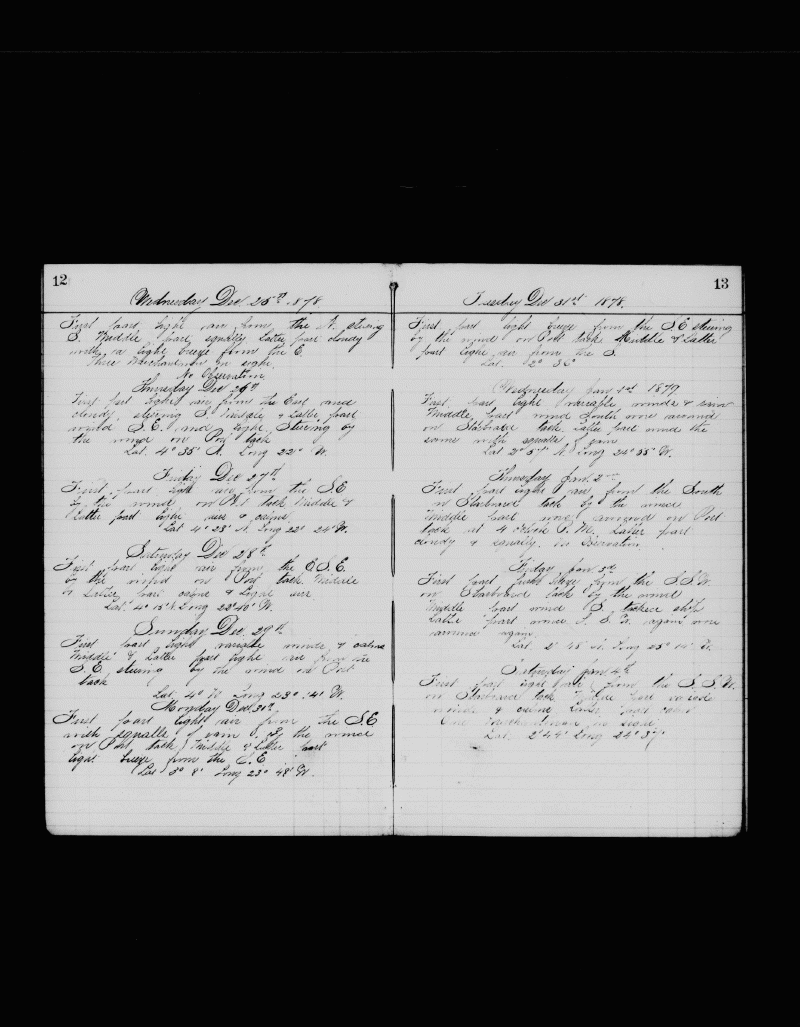 12
Wednesday Dec. 25th 1878
First part light air from the N. steering
S. Middle part squally Latter part cloudy
with a light breeze from the E.
Three Merchantmen in sight.
No Observation
Thursday Dec 26th
First part light air from the East and
cloudy, steering S. Middle & Latter part
wind S.E. and light. Steering by
the wind on Port tack
Lat. 4° 35' N. Long 22° W.
Friday Dec 27th
First part light air from the S.E.
by the wind on Port tack Middle &
Latter part light airs & calms.
Lat 4° 23' N. Long 22° 24' W.
Saturday Dec 28th
First part light air from the E.S.E.
by the wind on Port tack. Middle
& Latter part calms & light airs.
Lat. 4° 15' N. Long 23° 40' W.
Sunday Dec. 29th
First part light variable winds & calms
Middle & Latter part light air from the
S.E. steering by the wind on Port
tack
Lat. 4° N. Long 23° 41' W.
Monday Dec. 30th
First part light air from the S.E.
with squalls of rain by the wind
on Port tack, Middle & Latter part
light breeze from the S.E.
Lat 3° 8' Long 23° 48' W.
13
Tuesday Dec 31st 1878.
First part light breeze from the S.E. steering
by the wind on Port tack Middle & Latter
part light air from the S.
Lat. 2° 32'
Wednesday Jan 1st 1879
First part light variable winds & rain
Middle part wind South wore around
on Starboard tack. Latter part wind the
same with squalls of rain
Lat 2° 57' N. Long 24° 55' W.
Thursday Jan. 2nd
First part light air from the South
on Starboard tack by the wind
Middle part wore around on Port
tack at 4 oclock P.M. Latter part
cloudy & squally. No Observation.
Friday Jan 3rd
First part fresh breeze from the S.S.W.
on Starboard tack by the wind
Middle part wind S. tacked ship
Latter part wind S.S.W. again wore
around again.
Lat. 2° 45' N. Long 25° 14' W.
Saturday Jan 4th
First part light air from the S.S.W.
on Starboard tack Middle part variable
winds & calms Latter part calm
One merchantman in sight.
Lat. 2° 44' Long 24° 37'